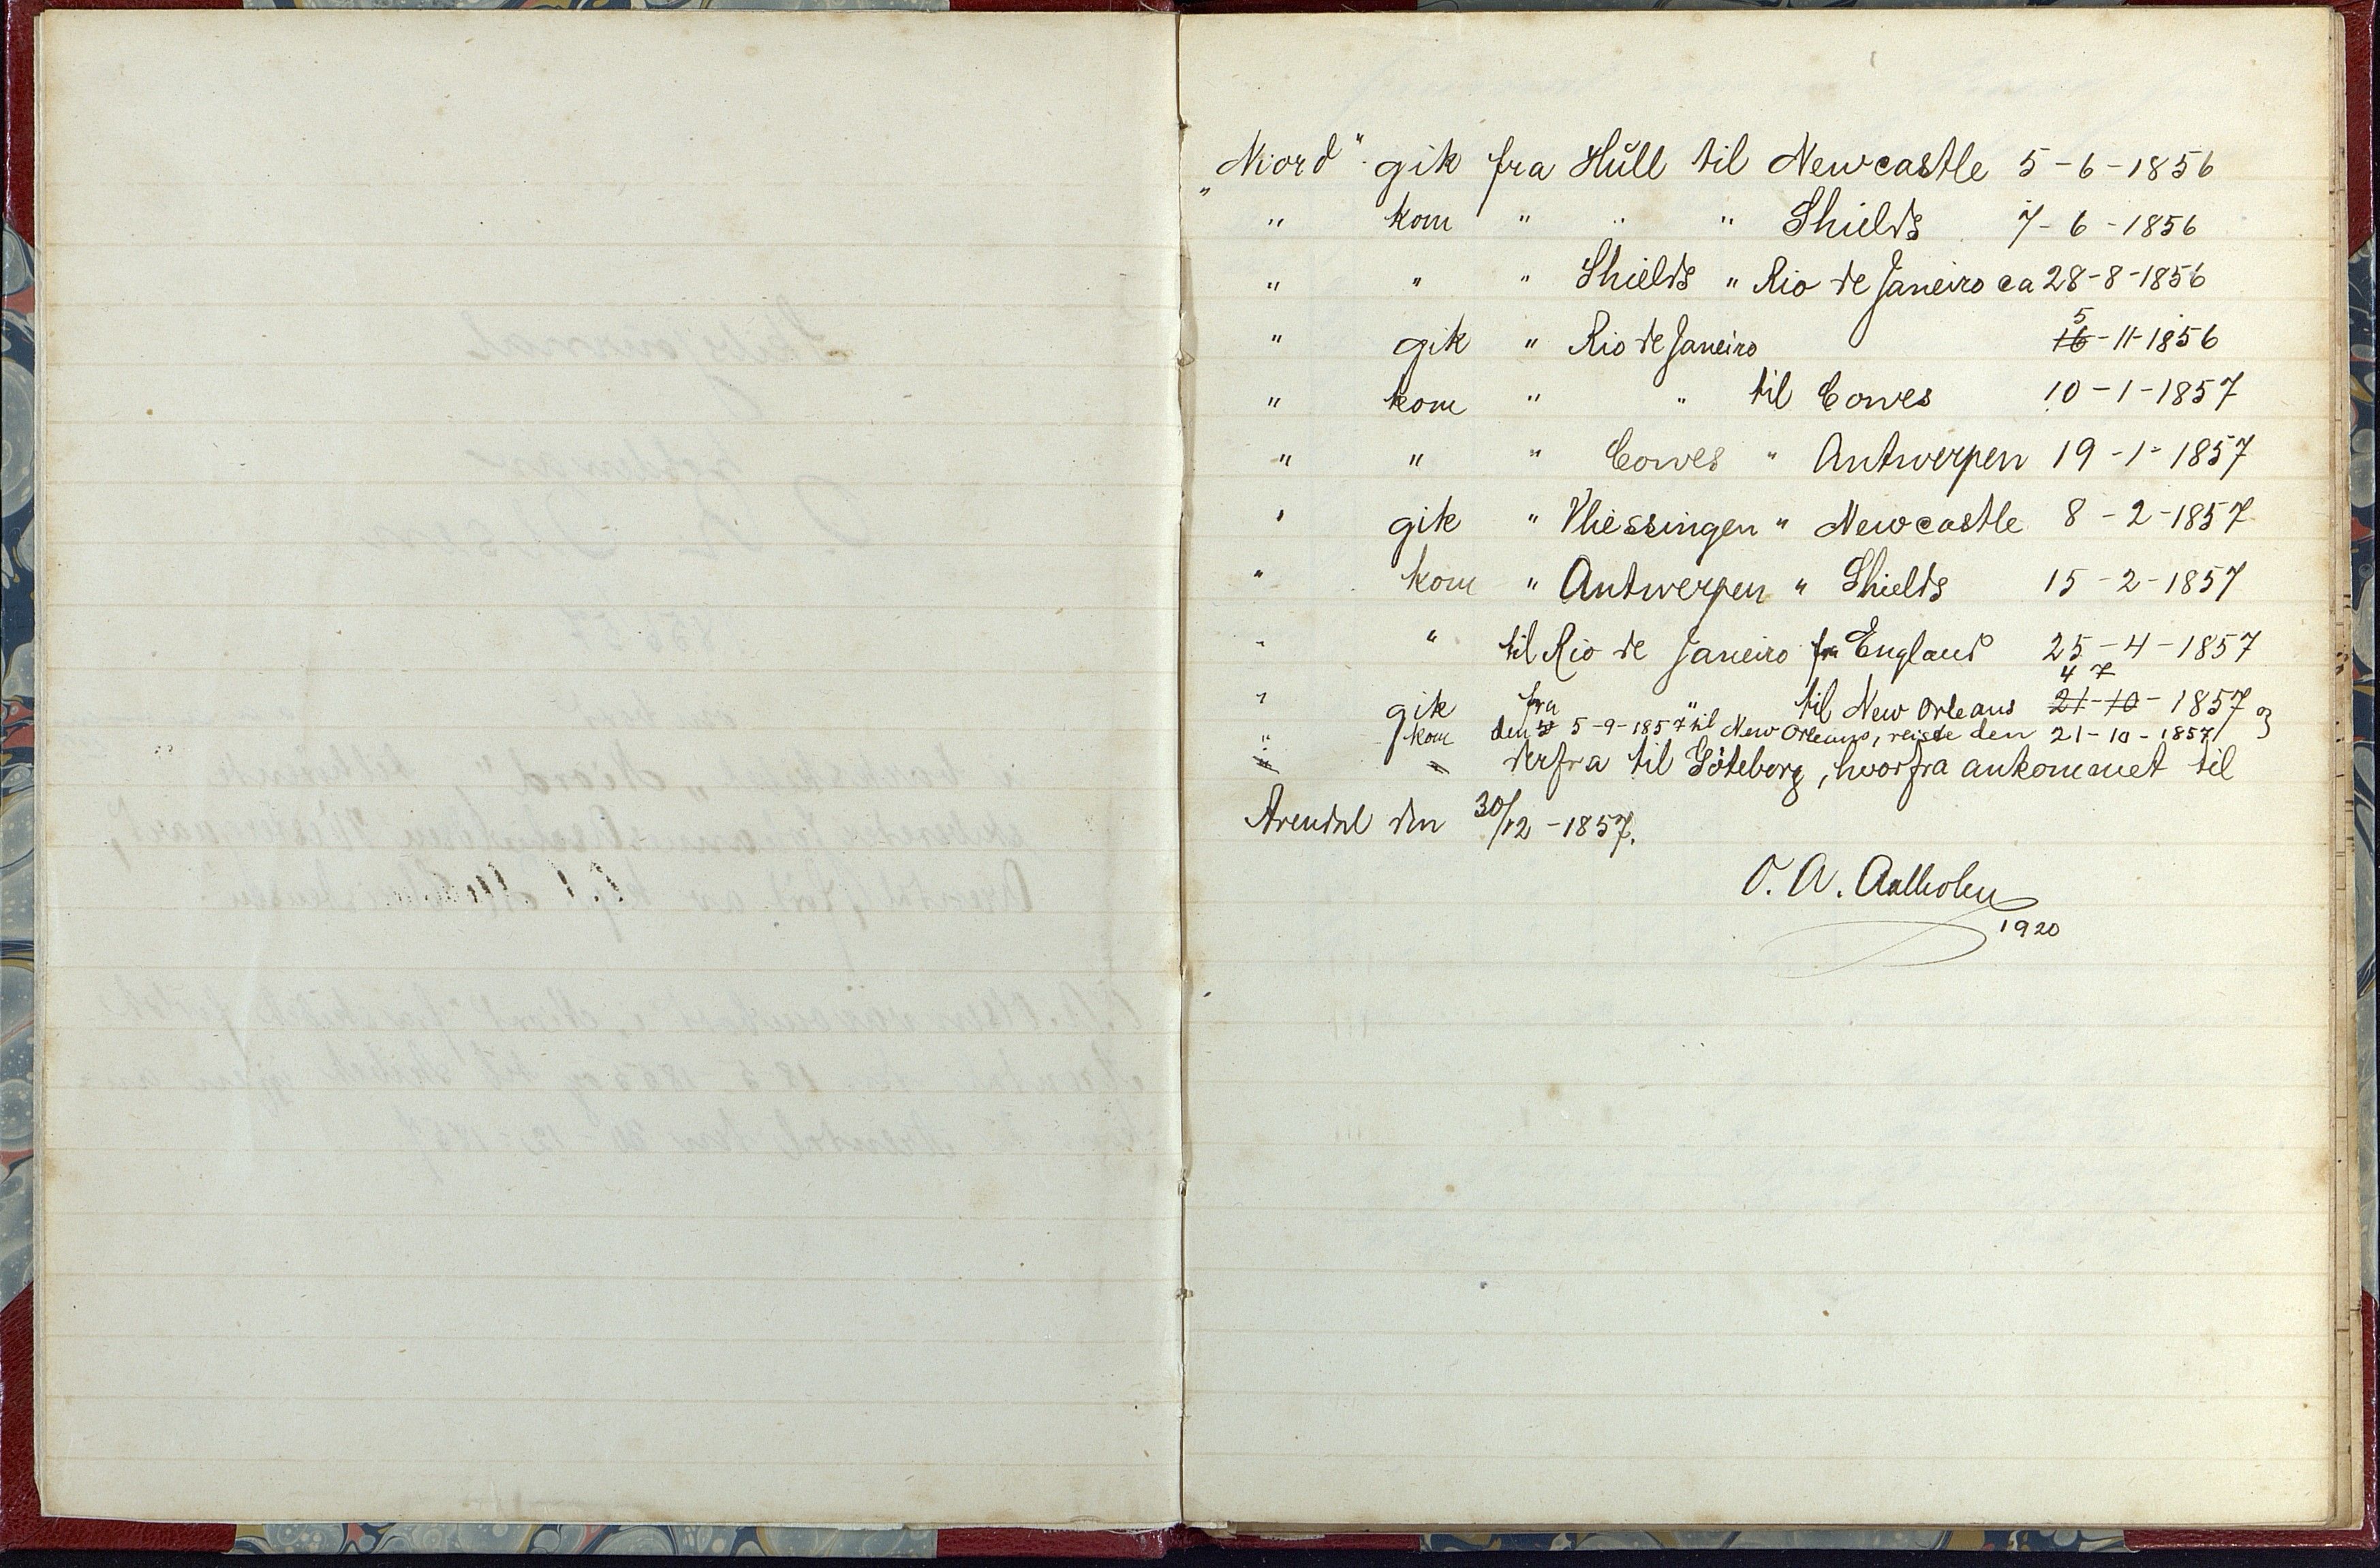 „Niord" gik fra Hull til Newcastle 5-6-1856
" kom " " " Shields 7-6-1856
" " " Shields " Rio de Janeiro ca 28-8-1856
" gik " Rio de Janeiro 16 5-11-1856
" kom " " til Cowes 10-1-1857
" " " Cowes " Antwerpen 19-1-1857
" gik " Vliessingen " Newcastle 8-2-1857
" kom " Antwerpen " Shields 15-2-1857
" " til Rio de Janeiro fra England 25-4-1857
" gik fra " til New Orleans 21-10 4 7 - 1857 og
" kom den 5-9-1857 til New Orleans, reiste den 21-10-1857
derfra til Göteborg, hvorfra ankommet til
Arendal den 30/12-1857.
O. A. Aalholm
1920